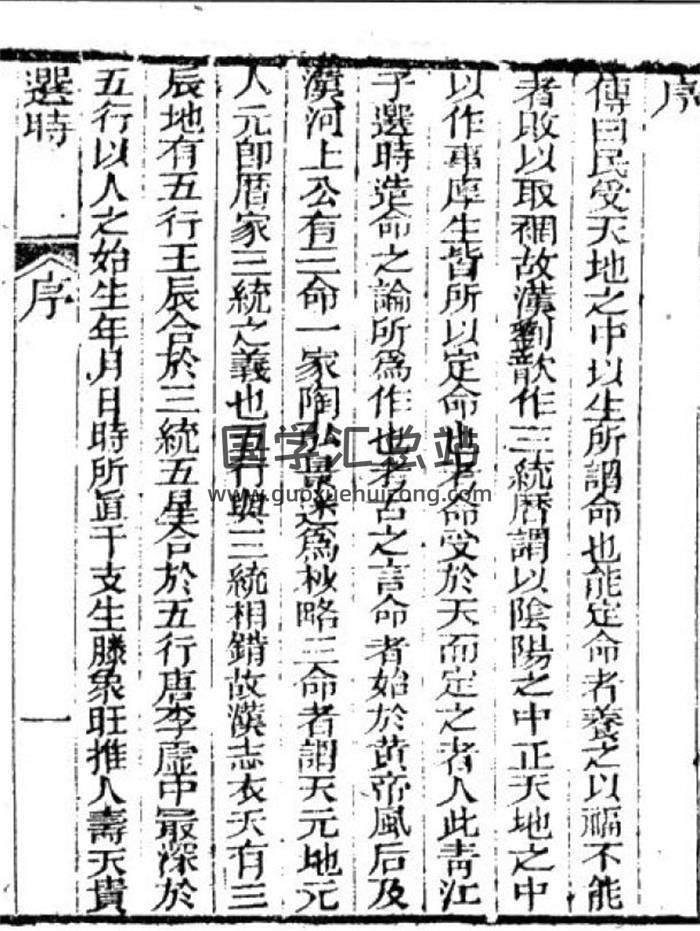 序
傳曰民受天地之中以生所謂命也能定命者養之以福不能
者敗以取禍故漢劉歆作三統曆謂以陰陽之中正天地之中
以作事厚生皆所以定命也者命受於天而定之者人此青江
子選時造命之論所爲作也考古之言命者始於黃帝風后及
漢河上公有三命一家陶弘景遂爲杪略三命者謂天元地元
人元卽曆家三統之義也五行與三統相錯故漢志衣天有三
辰地有五行王辰合於三統五星合於五行唐李虛中最深於
五行以人之始生年月日時所直干支生勝象旺推人壽夭貴
選時 序 一
国学汇总站
www.guoxuehuizong.com